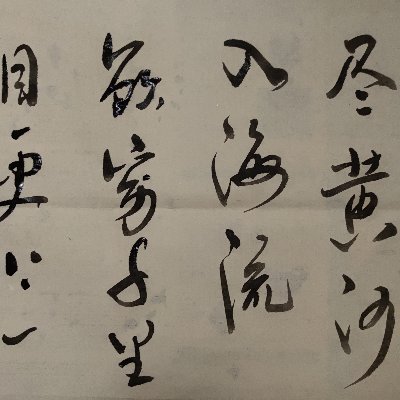 尽黄河
入海流
欲穷千里
目更上一